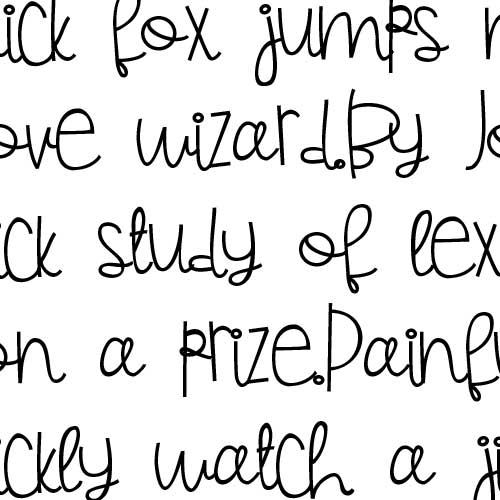 ick fox jumps
ove wizard.By Jo
ick study of lex
on a prize.Painfu
ickly watch a ji